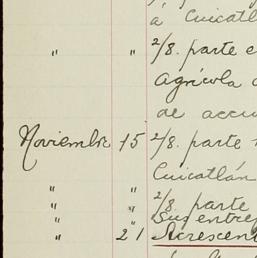 á Cuicatl
" " 2/8. parte e
Agrícola
de accio
Noviembre 15 2/8. parte
Cuicatlán
" " 2/8. parte
" " Sus entre
" 21 Acrescen